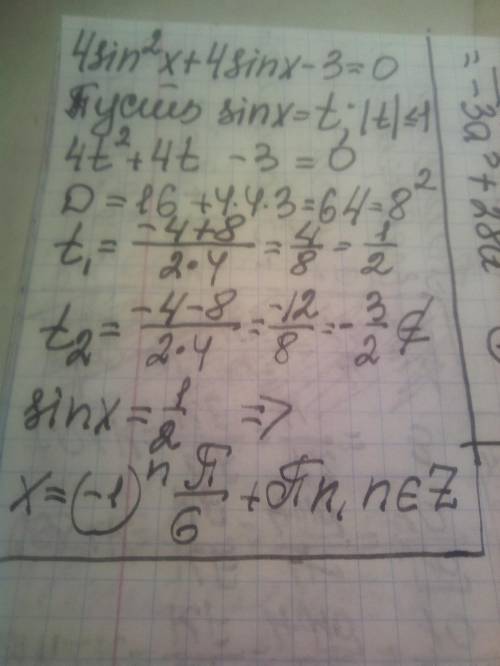 4sin²x+4sinx-3=0
Пусть sinx=t; |t|≤1
4t²+4t -3=0
D=16+4·4·3=64=8²
t₁=(-4+8)/(2·4)=4/8=1/2
t₂=(-4-8)/(2·4)=-12/8=-3/2 ∉
sinx=1/2 =>
x=(-1)ⁿ П/6+Пn, n∈Z
=-3a
+28a